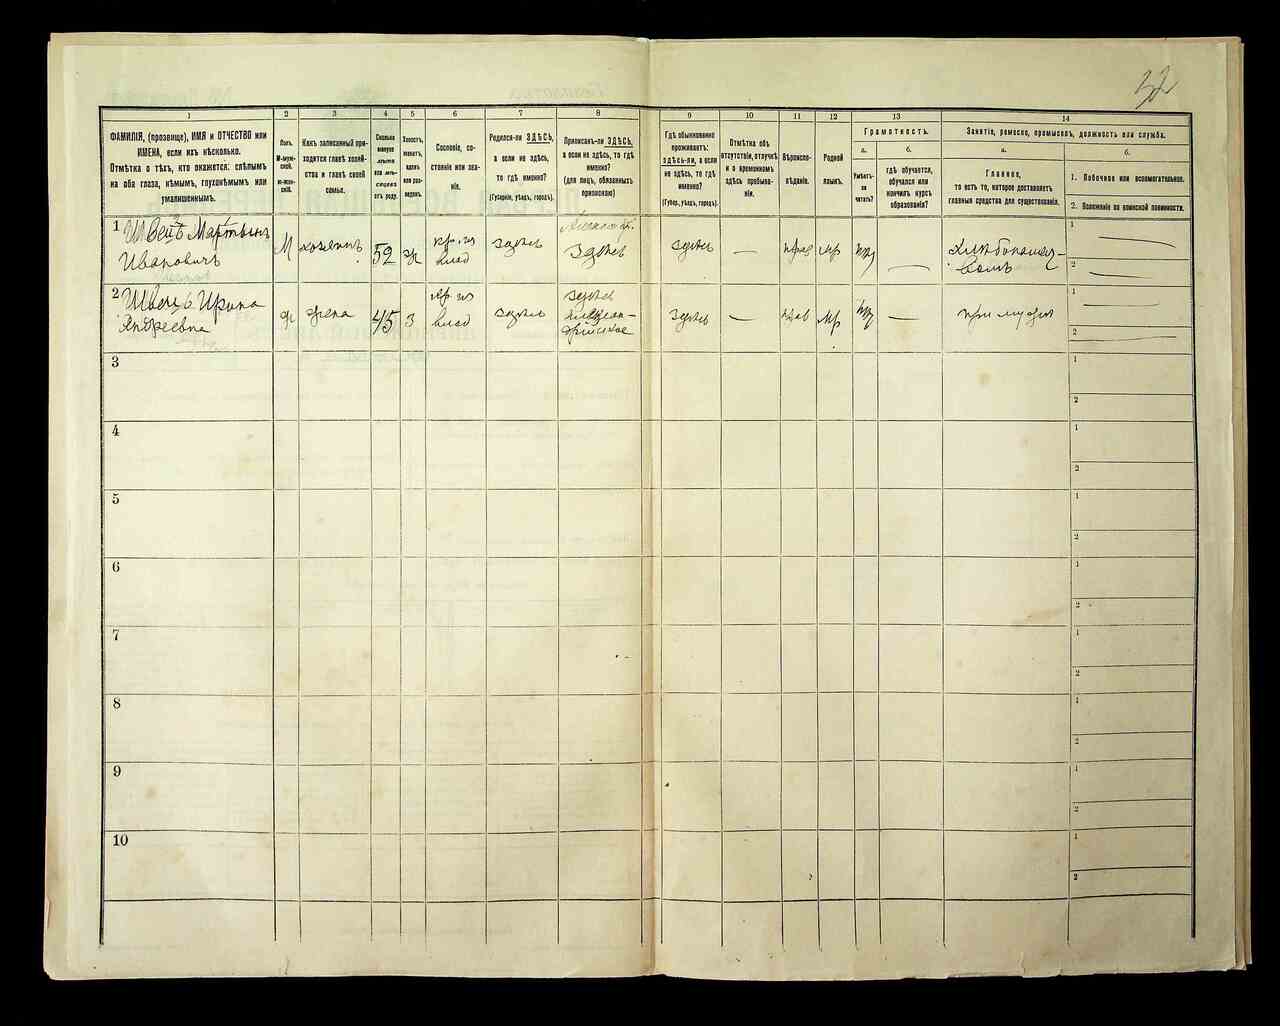 32
1
ФАМИЛІЯ, (прозвище), ИМЯ и ОТЧЕСТВО или
ИМЕНА, если ихъ нѣсколько.
Отмѣтка о тѣхъ, кто окажется: слѣпымъ
на оба глаза, нѣмымъ, глухонѣмымъ или
умалишеннымъ.
2
Полъ.
М-муж-
ской.
ж-жен-
скій.
3
Какъ записанный при-
ходится главѣ хозяй-
ства и главѣ своей
семьи.
4
Сколько
минуло
лѣтъ
или мѣ-
сяцевъ
отъ роду.
5
Холостъ,
женатъ,
вдовъ
или раз-
веденъ.
6
Сословіе, со-
стояніе или зва-
ніе.
7
Родился-ли ЗДѢСЬ,
а если не здѣсь,
то гдѣ именно?
(Губернія, уѣздъ, городъ).
8
Приписанъ-ли ЗДѢСЬ,
а если не здѣсь, то гдѣ
именно?
(для лицъ, обязанныхъ
припискою)
9
Гдѣ обыкновенно
проживаетъ:
здѣсь-ли, а если
не здѣсь, то гдѣ
именно?
(Губер., уѣздъ, городъ).
10
Отмѣтка объ
отсутствіи, отлучкѣ
и о временномъ
здѣсь пребыва-
ніи.
11
Вѣроиспо-
вѣданіе.
12
Родной
языкъ.
13
Грамотность.
а.
Умѣетъ-
ли
читать?
б.
гдѣ обучается,
обучался или
кончилъ курсъ
образованія?
14
Занятіе, ремесло, промыселъ, должность или служба.
а.
Главное,
то есть то, которое доставляетъ
главныя средства для существованія.
б.
1. Побочное или вспомогательное.
2. Положеніе по воинской повинности.
1
Швецъ Мартынъ
Ивановичъ
М
хозяинъ
52
ж
кр. из
влад
здѣсь
здѣсь
здѣсь
—
прав
мр
—
хлѣбопаше-
вомъ
1
2
2
Швецъ Ирина
Андреевна
ж
жена
45
З
кр из
влад
здѣсь
здѣсь
здѣсь
—
прав
мр
—
при мужѣ
1
2
3
1
2
4
1
2
5
1
2
6
1
2
7
1
2
8
1
2
9
1
2
10
1
2